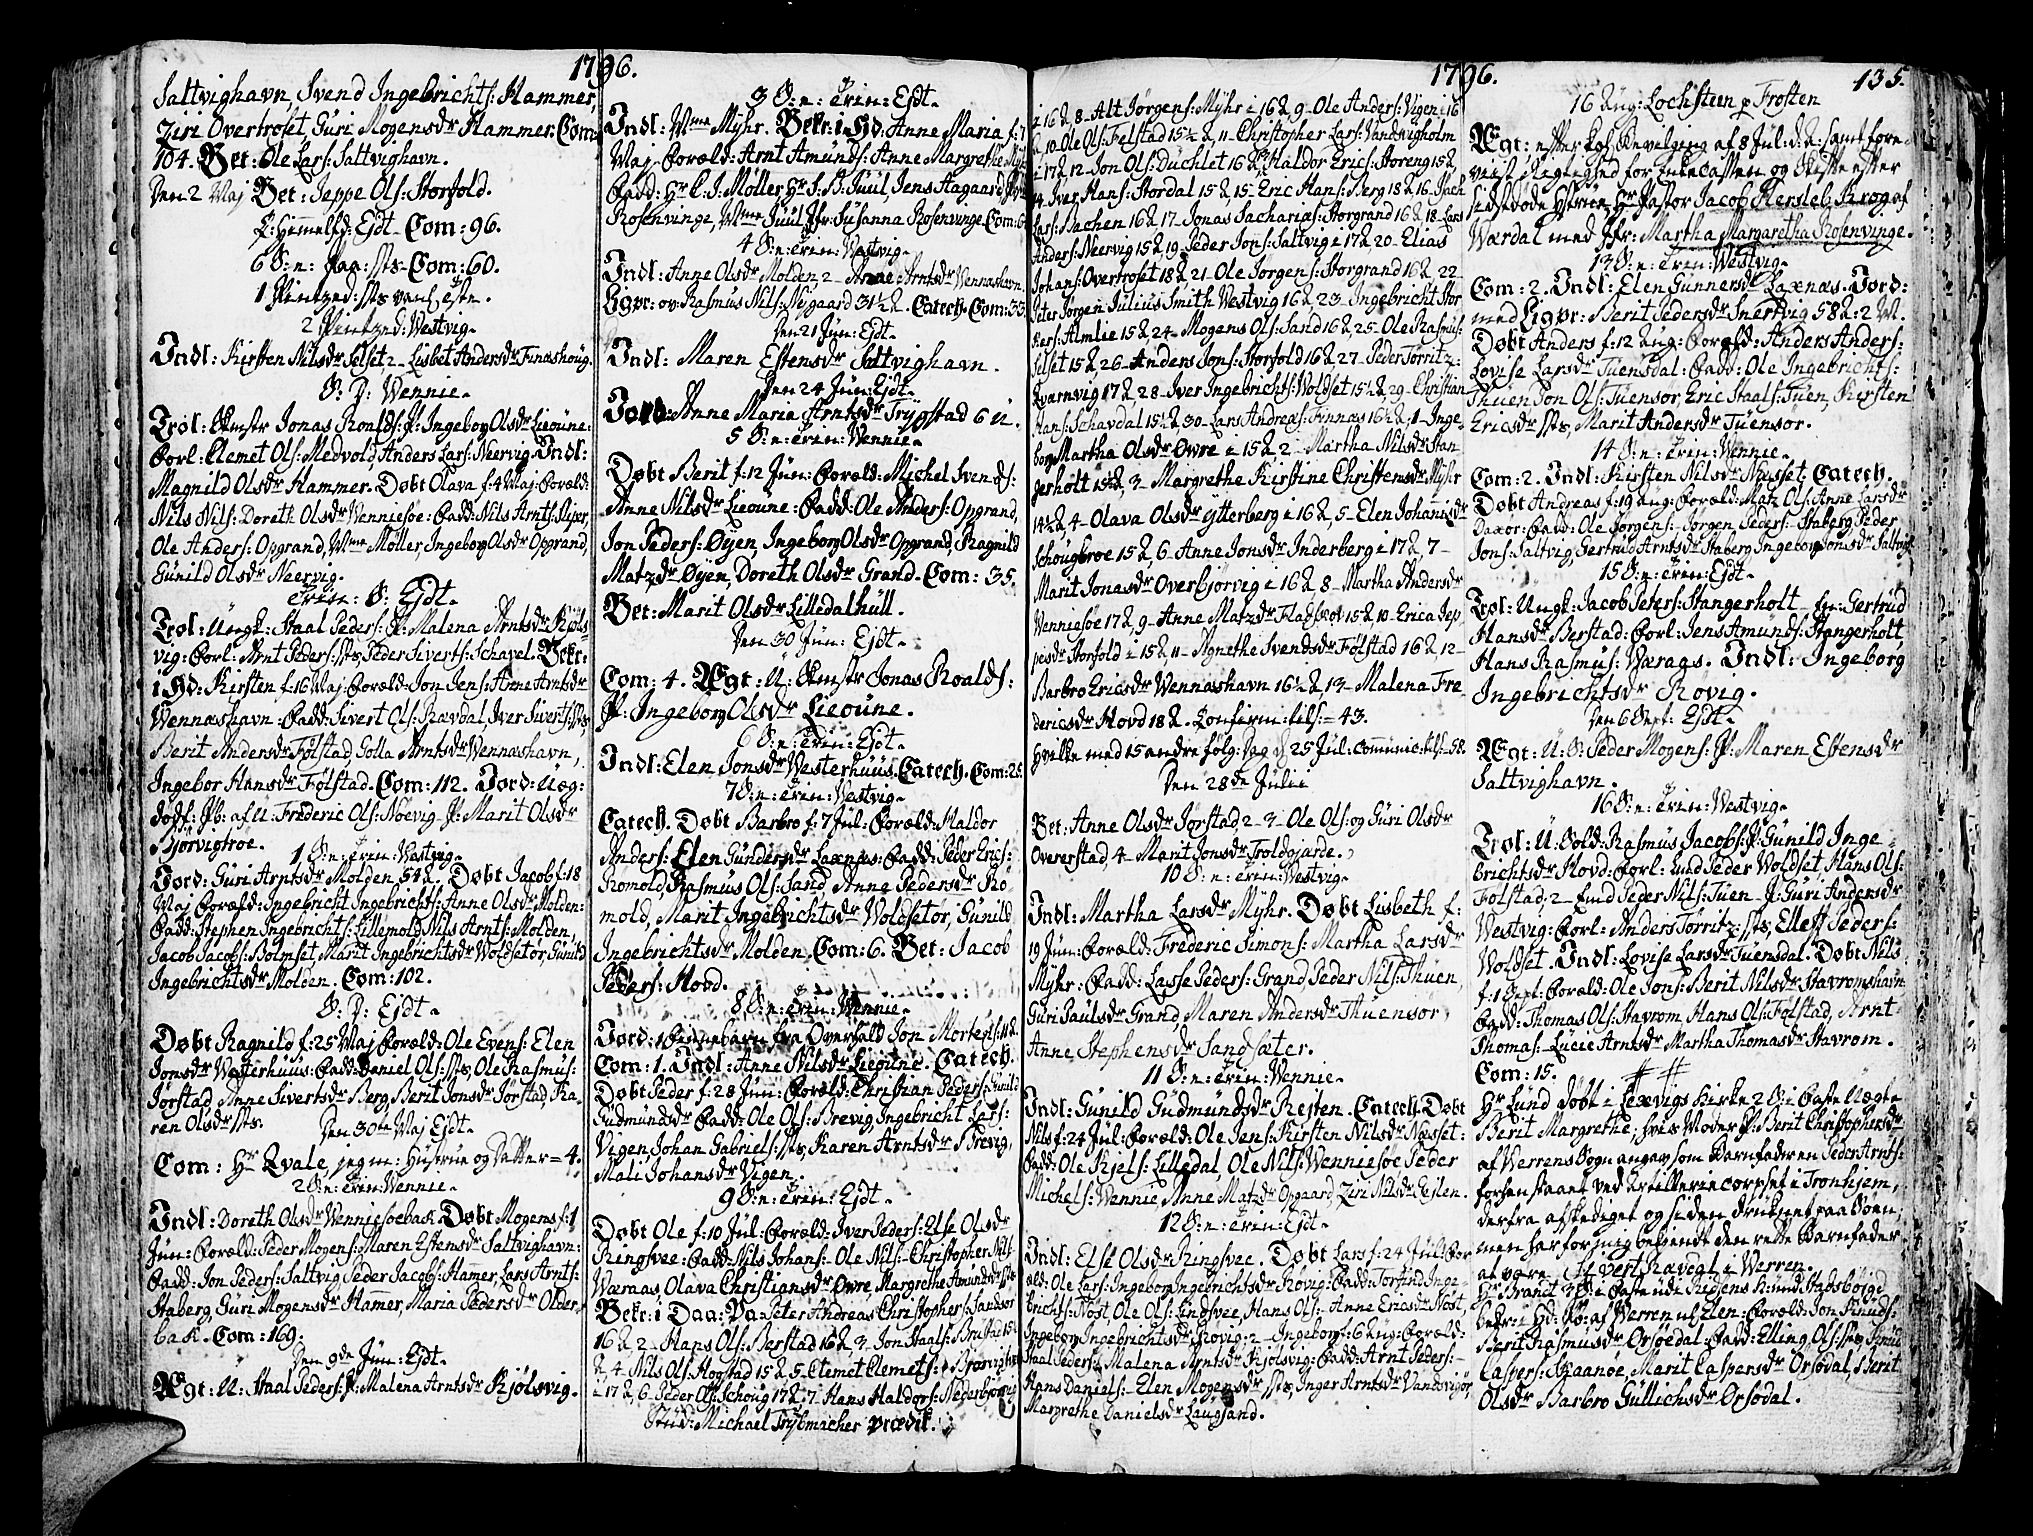 1796.
Saltvighavn, Svend Ingebrichts: Hammer,
Ziri Overtroset, Guri Mogensdr Hammer. Com:
104. Bet: Ole Lars: Saltvighavn.
Den 2 Maj Bet: Jeppe Ols: Storfold.
X: Himmelfd: Ejdt. Com: 96.
6 S: e: Paa: sts. Com: 60.
1 Pintzed: sts
2 Pintzed: Westvig.
Indl: Kirsten Nilsdr Selset 2 Lisbet Andersdr Finashoug.
S: D: Wennie.
Trol: Jonas Roalds: P: Ingeborg Olsdr Lieoune:
Forl: Clemet Ols: Medvold, Anders Lars: Neervig. Indl:
Magnild Olsdr Hammer. Døbt Olava f: 4 Maj: Foræld:
Nils Nils: Doreth Olsdr Wenniesoe: Fadd: Nils Arnts:
Ole Anders: Opgrand, Mme Møller, Ingeborg Olsdr Opgrand,
Gunild Olsdr Neervig.
Trin: S: Ejdt.
Trol: Ungk: Staal Peders: P: Malena Arntsdr Kjøls-
vig: Forl: Arnt Peders: sts, Peder Siverts: Schavel. Bekr:
i Hd: Kirsten f: 16 Maj: Foræld: Jon Jens: Anne Arntsdr
Wennashavn: Fadd: Sivert Ols: Rævdal, Iver Siverts: sts,
Berit Andersdr Følstad, Golla Arntsdr Wennashavn,
Ingebor Hansdr Følstad. Com: 112. Jord: Uæg-
dødf: Pb: af U: Frederic Ols: Noevig P: Marit Olsdr
Bjørvigtrøe.
1 S: e: Trin: Westvig.
Jord: Guri Arntsdr Molden 54 2. Døbt Jacob f: 18
Maj: Foræld: Ingebricht Ingebrichts: Anne Olsdr Molden:
Fadd: Stephen Ingebrichts: Lillemold, Nils Arnts: Molden,
Jacob Jacobs: Bolmset, Marit Ingebrichtsdr Woldsetør, Gunild
Ingebrichtsdr Molden. Com: 102.
S: D: Ejdt.
Døbt Ragnild f: 25 Maj: Foræld: Ole Evens: Elen
Jonsdr Westerhuus: Fadd: Daniel Ols: sts, Ole Rasmus:
Jørstad, Anne Sivertsdr Berg, Berit Jonsdr Jørstad, Ka-
ren Olsdr sts.
Den 30te Maj Ejdt.
Com: Hr Qvale, jeg m: Hustrue og Datter = 4.
2 S: e: Trin: Wennie.
Indl: Doreth Olsdr Wenniesoebak. Døbt Mogens f: 1
Jun: Foræld: Peder Mogens: Maren Estensdr Saltvighavn:
Fadd: Jon Peders: Saltvig, Peder Jacobs: Hamer, Lars Arnts:
Staberg, Guri Mogensdr Hamer, Maria Pedersdr Older-
bak. Com: 169.
Den 9de Jun: Ejdt.
Ægt: U: Staal Peders: P: Malena Arntsdr Kjølsvig.
3 S: e: Trin: Ejdt.
Indl: Mme Myhr. Bekr: i Hd: Anne Maria f: 7
Maj: Foræld: Arnt Amunds: Anne Margrethe Myhr
Fadd: Hr C. J. Møller, Hr S. B. Juul, Jens Aagaard
Rosenvinge, Mme Juul, Jfr: Susanna Rosenvinge. Com:
4 S: e: Trin: Westvig.
Indl: Anne Olsdr Molden, 2 Anne Arntsdr Wennashavn.
Ligpr: ov: Rasmus Nils: Nejgaard 31½ 2. Catech. Com: 33.
Den 21 Jun: Ejdt.
Indl: Maren Estensdr Saltvighavn.
Den 24 Jun: Ejdt.
Jord: Anne Maria Arntsdr Trygstad 6 U.
5 S: e: Trin: Wennie.
Døbt Berit f: 12 Jun: Foræld: Michel Svends:
Anne Nilsdr Lieoune: Fadd: Ole Anders: Opgrand,
Jon Peders: Øyen, Ingeborg Olsdr Opgrand, Ragnild
Matzdr Øyen, Doreth Olsdr Grand. Com: 35.
Bet: Marit Olsdr Lilledalhull.
Den 30 Jun: Ejdt.
Com: 4. Ægt: U: Jonas Roalds:
P: Ingeborg Olsdr Lieoune.
6 S: e: Trin: Ejdt.
Indl: Elen Jonsdr Westerhuus. Catech. Com: 25.
7 S: e: Trin: Westvig.
Catech. Døbt Barbro f: 7 Jul: Foræld: Haldor
Anders: Elen Gundersdr Laxnæs: Fadd: Peder Erics:
Romold, Rasmus Ols: Sand, Anne Pedersdr Ro-
mold, Marit Ingebrichtsdr Woldsetør, Gunild
Ingebrichtsdr Molden. Com: 6. Bet: Jacob
Peders: Hovd.
8 S: e: Trin: Wennie.
Jord: 1 Finnebarn fra Overhald Jon Mortens: 11 2.
Com: 1. Indl: Anne Nilsdr Lieoune. Catech.
Døbt Peder f: 28 Jun: Foræld: Christian Peders: Gunild
Gudmundsdr: Fadd: Ole Ols: Brevig, Ingebricht Lars:
Vigen, Johan Gabriels: sts, Karen Arntsdr Brevig,
Mali Johansdr Vigen.
9 S: e: Trin: Ejdt.
Døbt Ole f: 10 Jul: Foræld: Iver Peders: Else Olsdr
Ringsvee: Fadd: Nils Johans: Ole Nils: Christopher Nils:
Wæraas, Olava Christiansdr Ovre, Margrethe Amundsdr sts
Bekr: i Daa: Pa: Peter Andreas Christophers: Sandsør
16 2 2 Hans Ols: Berstad 16 2 3 Jon Staals: Brustad 15½
2, 4 Nils Ols: Hogstad 15 2 5 Clemet Clemets: Bioervig
i 17 2, 6 Peder Ols: Schoug 17 2 7 Hans Haldors: Nederbjørvig
Stud: Michael Trybmacher prædik:
1796. 135.
i 16 2 8 Alt Jørgens: Myhr i 16 2, 9 Ole Anders: Vigen i 16
2, 10 Ole Ols: Følstad 15½ 2, 11 Christopher Lars: Vandvigholm
i 17 2 12 Jon Ols: Duchlet 16 2, 13 Haldor Erics: Storeng 15 2
14 Iver Hans: Stordal 15 2 15 Eric Hans: Berg 18 2 16 Zach
Lars: Bachen 16 2 17 Jonas Sacharias: Storgrand 16 2 18 Lars
Anders: Neervig 15 2 19 Peder Jons: Saltvig i 17 2 20 Elias
Johans: Overtroset 18 2 21 Ole Jørgens: Storgrand 16 2 22
Peter Jørgen Julius Smith Westvig 16 2 23 Ingebricht Stor
Kers: Almlie 15 2 24 Mogens Ols: Sand 16 2, 25 Ole Rasmus:
Selset 15 2 26 Anders Jons: Storfold 16 2 27 Peder Torritz:
Qvarnvig 17 2 28 Iver Ingebrichts: Woldset 15½ 2 29 Christian
Hans: Schavdal 15½ 2 30 Lars Andreas: Finnæs 16½ 2, 1 Inge-
borg Martha Olsdr Øvre i 15 2 2 Martha Nilsdr Stan-
gerholt 15½ 2, 3 Margrethe Kirstine Christensdr Myhr
14½ 2 4 Olava Olsdr Ytterberg i 16 2, 5 Elen Johansdr
Schougbroe 15 2, 6 Anne Jonsdr Inderberg i 17 2, 7
Marit Jonasdr Overbjørvig i 16 2 8 Martha Andersdr
Wenniesoe 17 2, 9 Anne Matzdr Fladskov 15 2 10 Erica Jep
pesdr Storfold i 15 2 11 Agnethe Svendsdr Følstad 16 2, 12
Barbro Ericsdr Wennashavn 16½ 2 13 Malena Fre-
dericsdr Hovd 18 2. Confirm: tils: = 43.
hvilke med 15 andre følg: Dag d: 25 Jul: communic: tils: 58.
Den 28de Julii
Bet: Anne Olsdr Jørstad, 2 3 Ole Ols: og Guri Olsdr
Overerstad, 4 Marit Jonsdr Troldgjarde.
10 S: e: Trin: Westvig.
Indl: Martha Larsdr Myhr. Døbt Lisbeth f:
19 Jun: Foræld: Frederic Simons: Martha Larsdr
Myhr: Fadd: Lasse Peders: Grand, Peder Nils: Thuen,
Guri Paulsdr Grand, Maren Andersdr Thuensør,
Anne Stephensdr Sandsæter.
11 S: e: Trin: Wennie.
Indl: Gunild Gudmundsdr Rejten. Catech. Døbt
Nils f: 24 Jul: Foræld: Ole Jens: Kirsten Nilsdr Næsset:
Fadd: Ole Kjels: Lilledal, Ole Nils: Wenniesøe, Peder
Michels: Wennie, Anne Matzdr Opgaard, Ziri Nilsdr Rejten.
12 S: e: Trin: Ejdt.
Indl: Else Olsdr Ringsvee. Døbt Lars f: 24 Jul: For
æld: Ole Lars: Ingeborg Ingebrichtsdr Rovig: Fadd: Torfind Inge-
brichts: Nøst, Ole Ols: Lindsvee, Hans Ols: Anne Ericsdr Nøst,
Ingeborg Ingebrichtsdr Rovig: 2 Ingeborg f: 6 Aug: Foræld:
Staal Peders: Malena Arntsdr Kjølsvig: Fadd: Arnt Peders:
Hans Daniels: Elen Mogensdr sts, Inger Arntsdr Vandvigør,
Margrethe Danielsdr Laugsand.
16 Aug: Lochsteen p Frosten
Ægt: efter kgl: Bevilging af 8 Jul: d: A: samt fore-
viist Rigtighed for Enkecassen og Skifte efter
sidstdøde Hustrue, Hr Pastor Jacob Hersleb Krog af
Værdal med Jfr: Martha Margaretha Rosenvinge.
13 S: e: Trin: Westvig.
Com: 2. Indl: Elen Gunnersdr Laxnæs. Jord:
med Ligpr: Berit Pedersdr Snertvig 58 2: 2 M.
Døbt Anders f: 12 Aug: Foræld: Anders Anders:
Lovise Larsdr Tuensdal: Fadd: Ole Ingebrichts:
Thuen, Jon Ols: Tuensør, Eric Staals: Tuen, Kirsten
Ericsdr sts, Marit Andersdr Tuensør.
14 S: e: Trin: Wennie.
Com: 2. Indl: Kirsten Nilsdr Næsset. Catech.
Døbt Andreas f: 19 Aug: Foræld: Matz Ols: Anne Larsdr
Daxor: Fadd: Ole Jørgens: Jørgen Peders: Staberg, Peder
Jons: Saltvig, Gertrud Arntsdr Staberg, Ingeborg Jonsdr Saltvig.
15 S: e: Trin: Ejdt.
Trol: Ungk: Jacob Peters: Stangerholt Gertrud
Hansdr Berstad: Forl: Jens Amunds: Stangerholt
Hans Rasmus: Wærags. Indl: Ingeborg
Ingebrichtsdr Rovig.
Den 6 Sept: Ejdt.
Ægt: U: S: Peder Mogens: P: Maren Estensdr
Saltvighavn.
16 S: e: Trin: Westvig.
Trol: U: Sold: Rasmus Jacobs: P: Gunild Inge-
brichtsdr Hovd: Forl: Peder Woldset, Hans Ols:
Følstad, 2 Peder Nils: Tuen P: Guri Andersdr
Westvig: Forl: Anders Torritz: sts, Ellef Peders:
Woldset. Indl: Lovise Larsdr Tuensdal. Døbt Nils
f: 1 Sept: Foræld: Ole Jons: Berit Nilsdr Havromshavn
Fadd: Thomas Ols: Havrom, Hans Ols: Følstad, Arnt
Thomas: Lucie Arntsdr Martha Thomasdr Havrom.
Com: 15.
Hr Lund døbt i Lexvigs Kirke 2 S: i Faste Uægte
Berit Margrethe, hvis Moder P: Berit Christophersdr
af Werrens Sogn angav som Barnfaderen Peder Arnts:
forhen staaet ved Artilleriecorpset i Tronhjem,
derfra afskediget og siden druknet paa Søen,
men har for mig bekiendt den rette Barnfader
at være: Sivert Ravegt i Werren.
Hr Brandt 3 S: i Faste udi Ridsens Kund Stadsbøygd
bekr: i Hd: Kø: af Werren uf: Elen: Foræld: Jon Knuds:
Berit Rasmusdr Orsøedal: Fadd: Elling Ols: sts, Knud
Caspers: Kraanoe, Marit Caspersdr Orsødal, Berit
Olsdr Barbro Gullichsdr Orsødal.